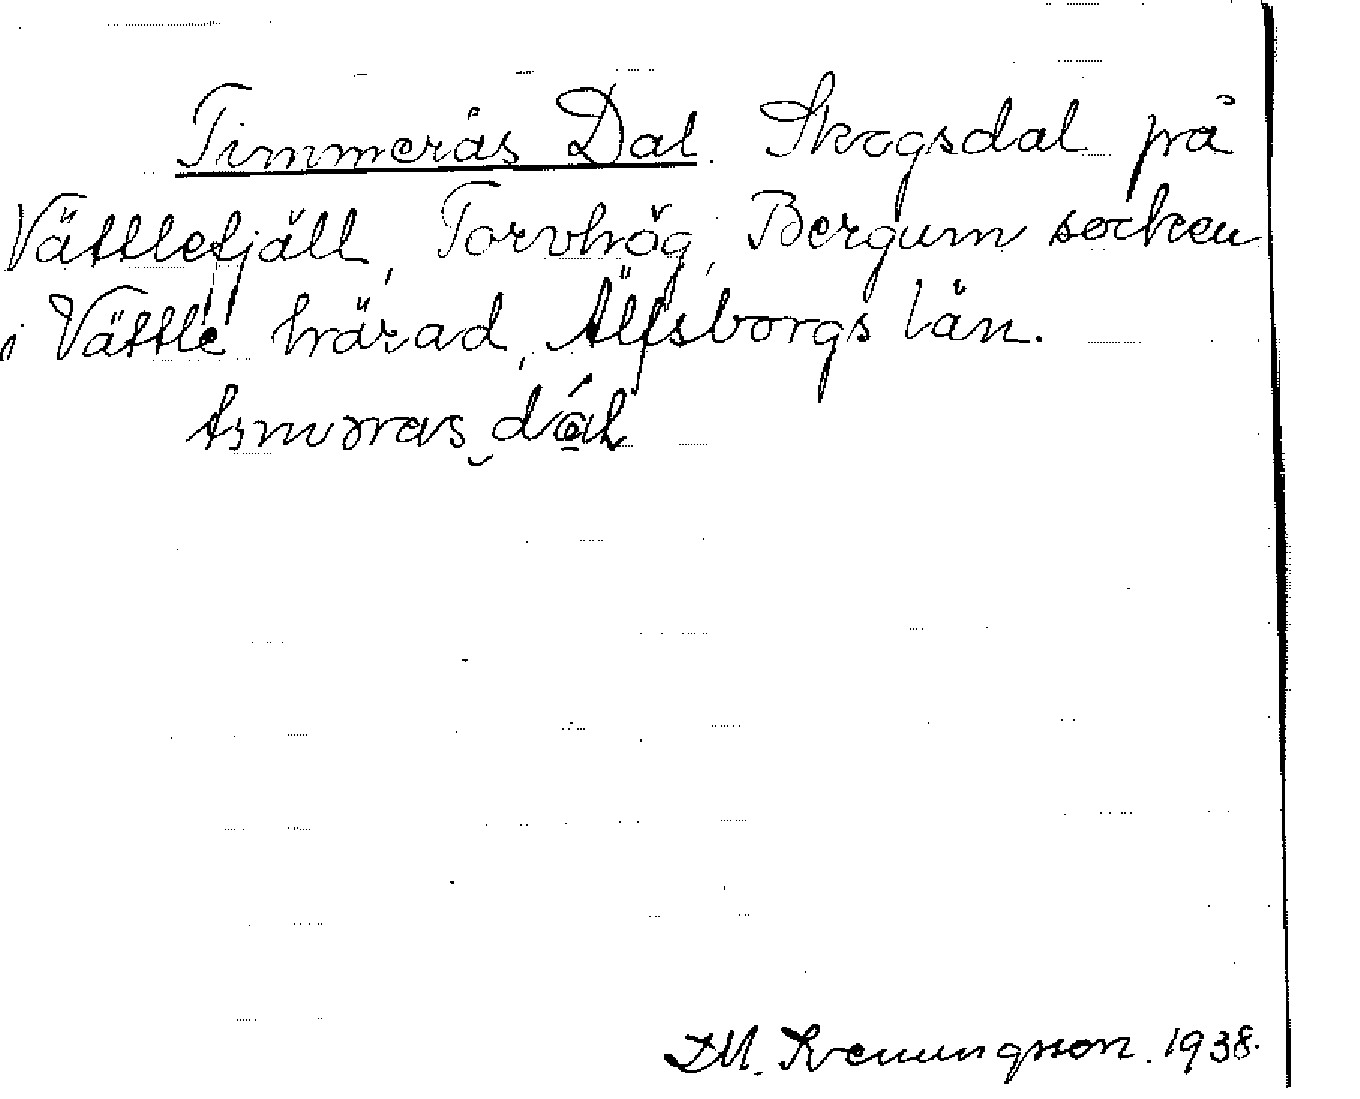 Timmerås Dal. Skogsdal på
Vättlefjäll, Torvhög, Bergum socken
i Vättle härad, Älfsborgs län.
1938.